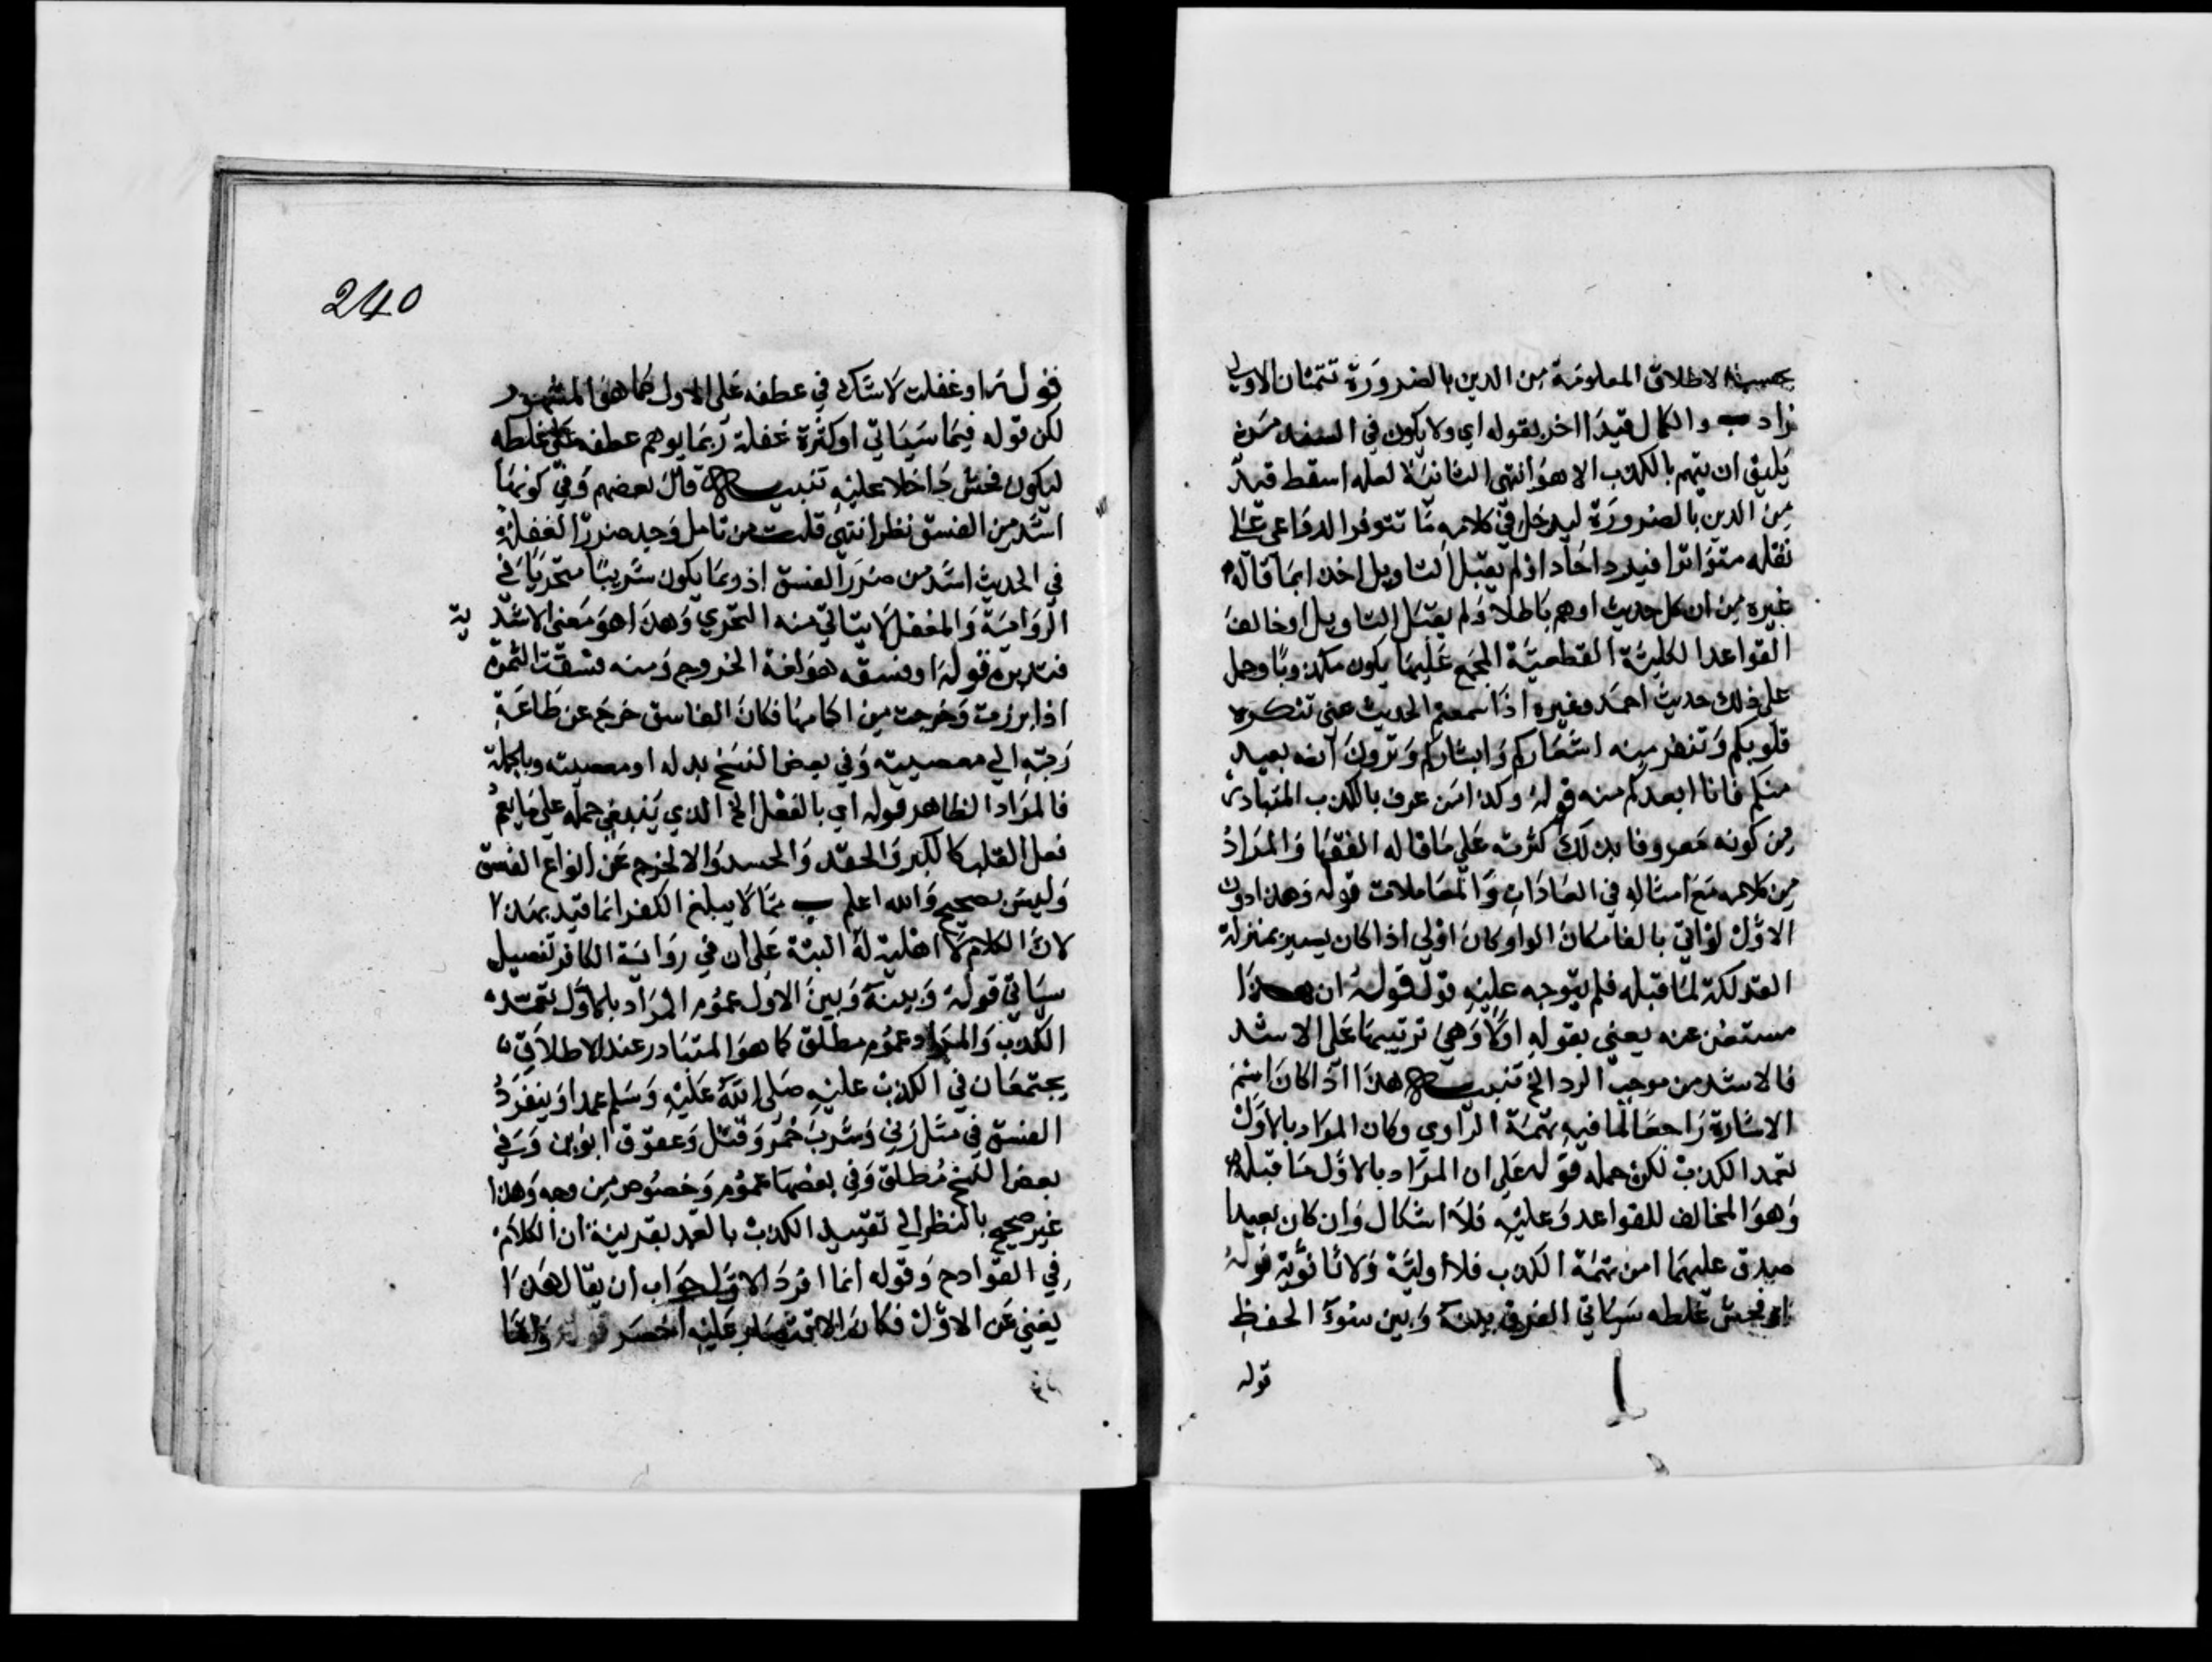 بحسب الاطلاق المعلومة من الدين بالضرورة تتمتان الاولى
زاد والكمال قيدا اخر بقوله اي ولا يكون في السند من
يليق ان يتهم بالكذب الا هو انتهى الثانية لعله اسقط قيد
من الدين بالضرورة ليدخل في كلامه ما تتوفر الدواعي على
نقله متواترا فيرد احادا اذ لم يقبل التاويل اخذا بما قاله
غيره من ان كل حديث اوهم باطلا ولم يقبل التاويل او خالف
القواعد الكلية القطعية المجمع عليها يكون مكذوبا وحمل
على ذلك حديث احمد وغيره اذا سمعتم الحديث عني تنكره
قلوبكم وتنفر منه اشعاركم وابشاركم وترون انه بعيد
منكم فانا ابعدكم منه قوله وكذا من عرف بالكذب المتبادر
من كونه معروفا بذلك كثرته على ما قاله الفقها والمراد
من كلامه مع امثاله في العادات والمعاملات قوله وهذا دون
الاول لو اتى بالفا مكان الواو كان اولى اذا كان يسير بمنزلة
الفذلكة لما قبله فلم يتوجه عليه قوله قوله ان هذا
مستغن عنه يعني بقوله اولا وهي ترتيبها على الاشد
فالاشد من موجب الرد الخ تنبيه هذا اذا كان اسم
الاشارة راجعا لما فيه تهمة الراوي وكان المراد بالاول
تعمد الكذب لكن حمله قوله على ان المراد بالاول ما قبله
وهو المخالف للقواعد وعليه فلا اشكال وان كان بعيدا
صدق عليهما امن تهمة الكذب فلا اولية ولا ثانوية قوله
او فحش غلطه سياتي الفرق بينه وبين سوء الحفظ
قوله
240
قوله او غفلت لا شك في عطفه على الاول كما هو المشهور
لكن قوله فيما سياتي او كثرة غفلة ربما يوهم عطفه على غلطه
ليكون فحش داخلا عليه تنبيه قال بعضهم وفي كونها
اشد من الفسق نظر انتهى قلت من تامل وجد ضرر الغفلة
في الحديث اشد من ضرر الفسق اذ ربما يكون شريبا متحريا في
الرواية والمغفل لا يتاتى منه التحري وهذا هو معنى الاشدية
فتدبره قوله او فسقه هو لغة الخروج ومنه فسقت الثمرة
اذا برزت وخرجت من اكمامها فكان الفاسق خرج عن طاعة
ربه الى معصيته وفي بعض النسخ بدله او معصيته وبالجملة
فالمراد الظاهر قوله اي بالفعل الخ الذي ينبغي حمله على ما يعم
فعل القلب كالكبر والحقد والحسد والا لخرج عن انواع الفسق
وليس بصحيح والله اعلم مما لا يبلغ الكفر انما قيد بهذا
لان الكلام لا اهلية له البتة على ان في رواية الكافر تفصيل
سياتي قوله وبينه وبين الاول عموم المراد بالاول تعمد
الكذب والمراد عموم مطلق كما هو المتبادر عند الاطلاق
يجتمعان في الكذب عليه صلى الله عليه وسلم عمدا وينفرد
الفسق في مثل زنى وشرب خمر وقتل وعقوق ابوين وفي
بعض النسخ مطلق وفي بعضها عموم وخصوص من وجه وهذا
غير صحيح بالنظر الى تقييد الكذب بالعمد بقرينة ان الكلام
في القوادح وقوله انما افرد الاول جواب ان يقال هذا
يغني عن الاول فكان الاقتصار عليه اخصر قوله وانما